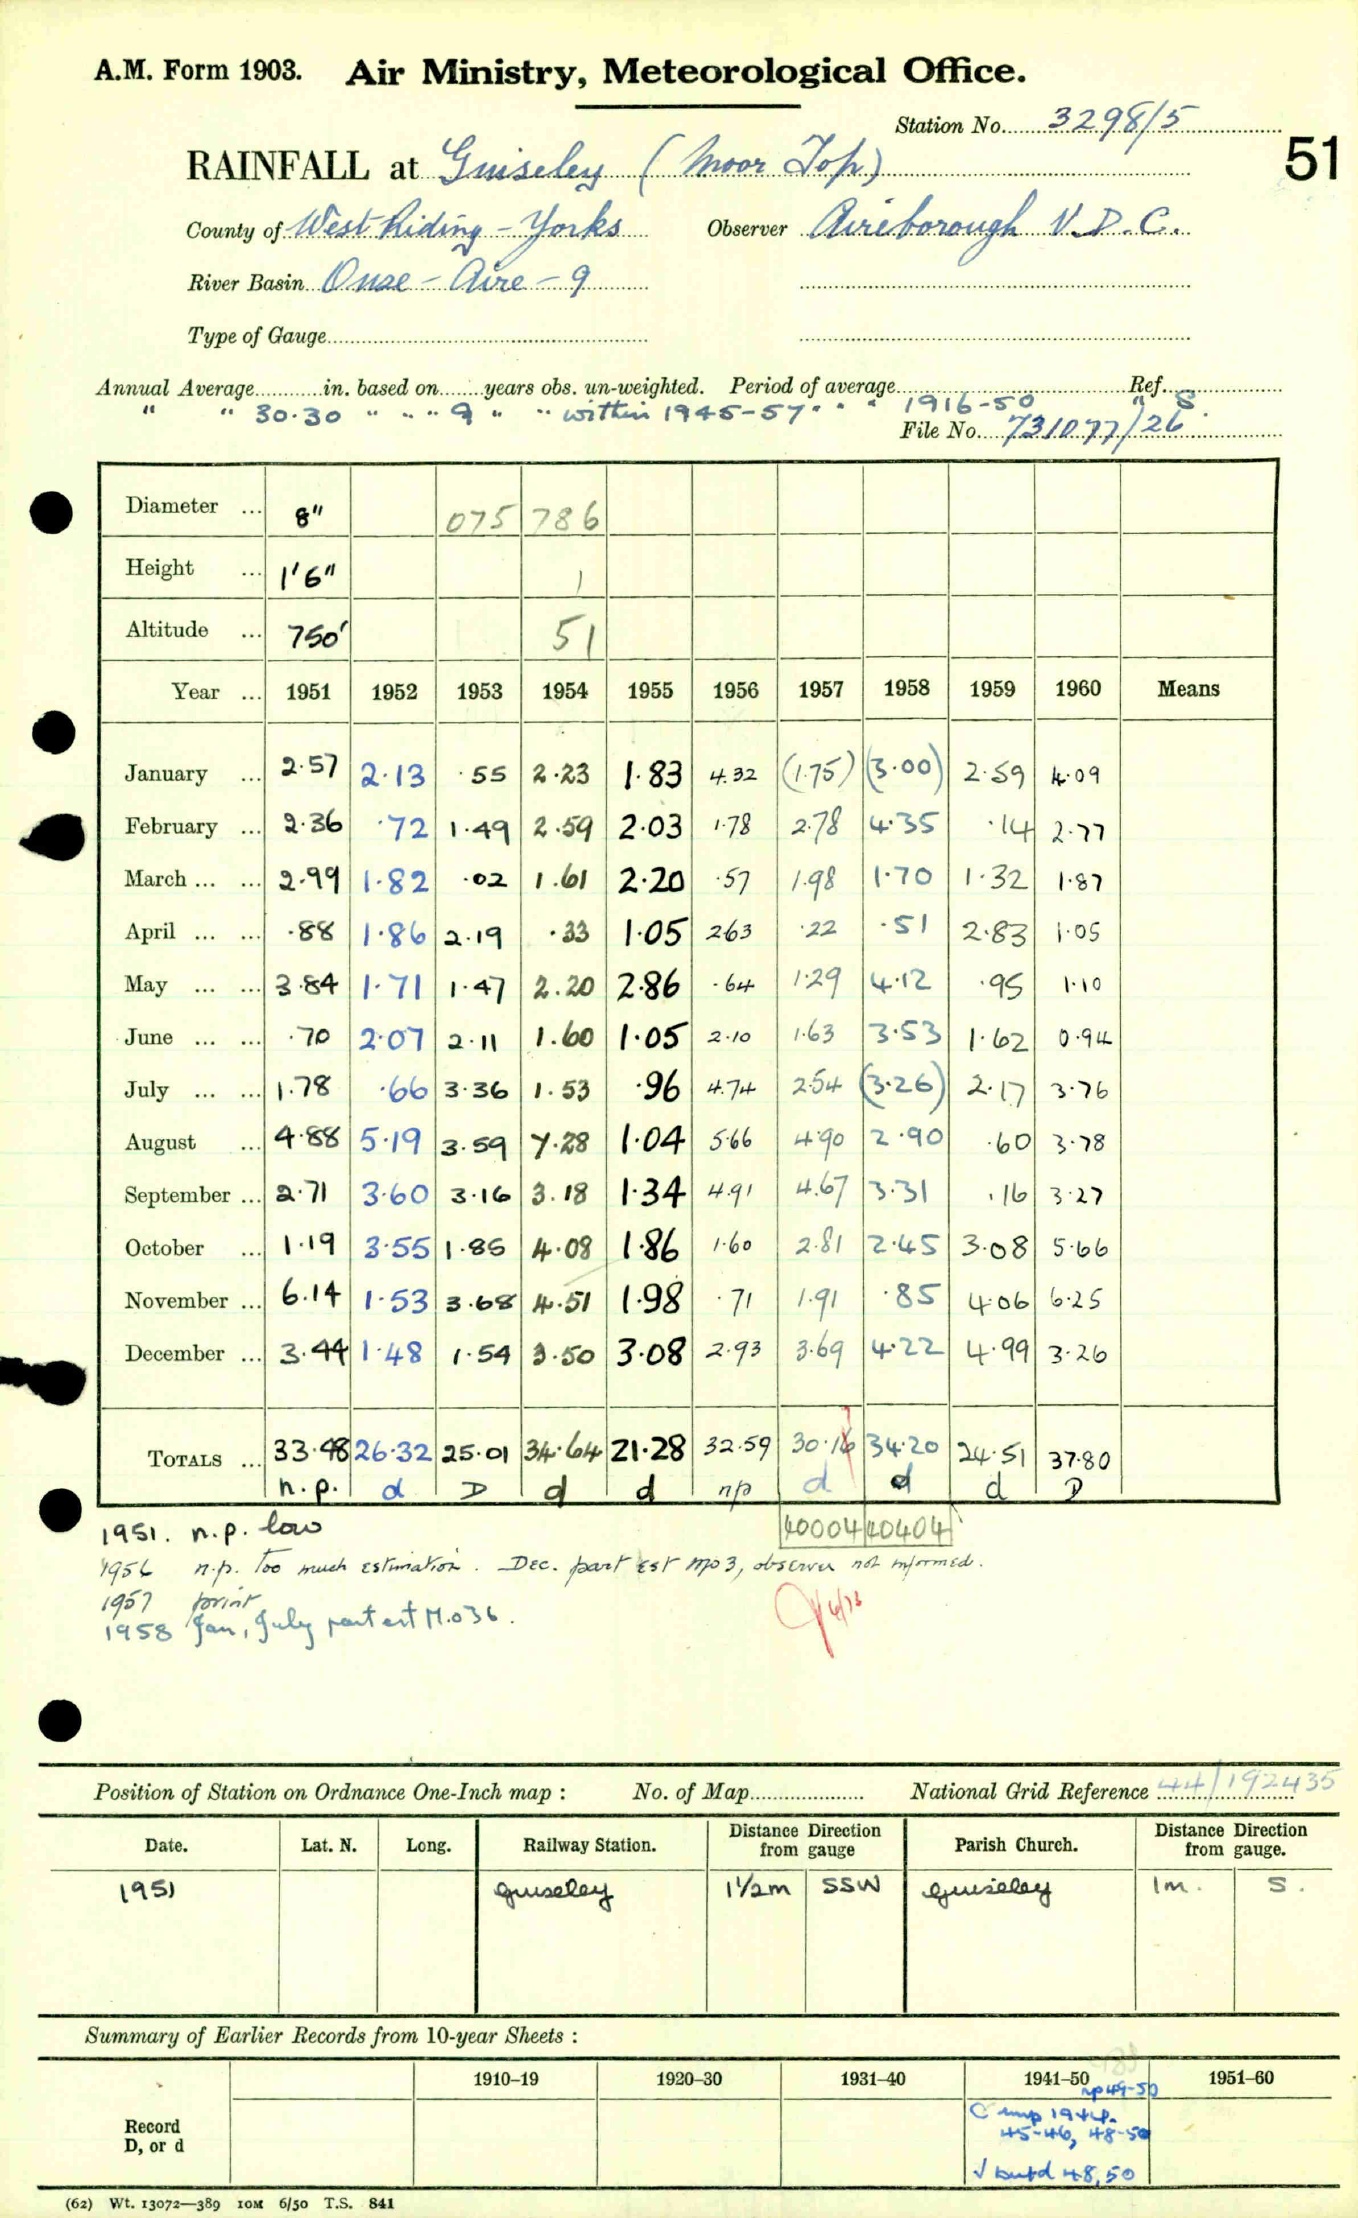 A.M. Form 1903. Air Ministry, Meteorological Office.
Station No. 3298/5
51
RAINFALL at Guiseley (Moor Top)
County of West Riding - Yorks Observer Aireborough U.D.C.
River Basin Ouse - Aire - 9
Type of Gauge
Annual Average in. based on years obs. un-weighted. Period of average Ref.
" " 30.30 " " " 9 " " within 1945-57 " " " 1916-50 " 8.
File No. 731077/26
Diameter ... 8" 075 786
Height ... 1'6" 1
Altitude ... 750' 51
Year ... 1951 1952 1953 1954 1955 1956 1957 1958 1959 1960 Means
January ... 2.57 2.13 .55 2.23 1.83 4.32 (1.75) (3.00) 2.59 4.09
February ... 2.36 .72 1.49 2.59 2.03 1.78 2.78 4.35 .14 2.77
March ... ... 2.99 1.82 .02 1.61 2.20 .57 1.98 1.70 1.32 1.87
April ... ... .88 1.86 2.19 .33 1.05 2.63 .22 .51 2.83 1.05
May ... ... 3.84 1.71 1.47 2.20 2.86 .64 1.29 4.12 .95 1.10
June ... ... .70 2.07 2.11 1.60 1.05 2.10 1.63 3.53 1.62 0.94
July ... ... 1.78 .66 3.36 1.53 .96 4.74 2.54 (3.26) 2.17 3.76
August ... 4.88 5.19 3.59 7.28 1.04 5.66 4.90 2.90 .60 3.78
September ... 2.71 3.60 3.16 3.18 1.34 4.91 4.67 3.31 .16 3.27
October ... 1.19 3.55 1.85 4.08 1.86 1.60 2.81 2.45 3.08 5.66
November ... 6.14 1.53 3.68 4.51 1.98 .71 1.91 .85 4.06 6.25
December ... 3.44 1.48 1.54 3.50 3.08 2.93 3.69 4.22 4.99 3.26
TOTALS ... 33.48 26.32 25.01 34.64 21.28 32.59 30.1 34.20 24.51 37.80
n.p. d D d d np d d d D
40004 40404
1951. n.p. low
1956 n.p. Too much estimation. Dec. part est mo3, observer not informed.
1957 print
1958 Jan, July part est M.o3b.
Position of Station on Ordnance One-Inch map : No. of Map National Grid Reference 44/192435
Date. Lat. N. Long. Railway Station. Distance Direction from gauge Parish Church. Distance Direction from gauge.
1951 Guiseley 1½m SSW Guiseley 1m. S.
Summary of Earlier Records from 10-year Sheets :
1910–19 1920–30 1931–40 1941–50 1951–60
np 49-50
Record
D, or d
C 1944.
45-46, 48-50
48,50
(62) Wt. 13072—389 10M 6/50 T.S. 841